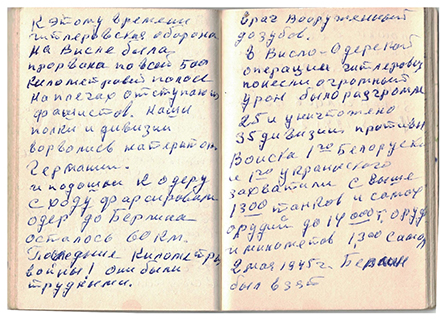 К этому времени
гитлеровская оборона
на Висле была
прорвана по всей 500
километровой полосе
на плечах отступающ
фашистов. Наши
полки и дивизии
ворвались на територ.
Германии.
и подошли к одеру
с ходу фарсировали
одер до Берлина
осталось 60 км.
Последние километры
войны! они были
трудными.
враг вооруженный
до зубов.
в Висло-Одерской
операции гитлеровц
понесли огромный
урон было разгромле
25 и уничтожено
35 дивизии противн
Войска 1го Белорусск
и 1го украинского
захватили свыше
1300 танков и самох
орудий до 14 000 т. оруд
и минометов 1300 самол
2 мая 1945 г. Берлин
был взят